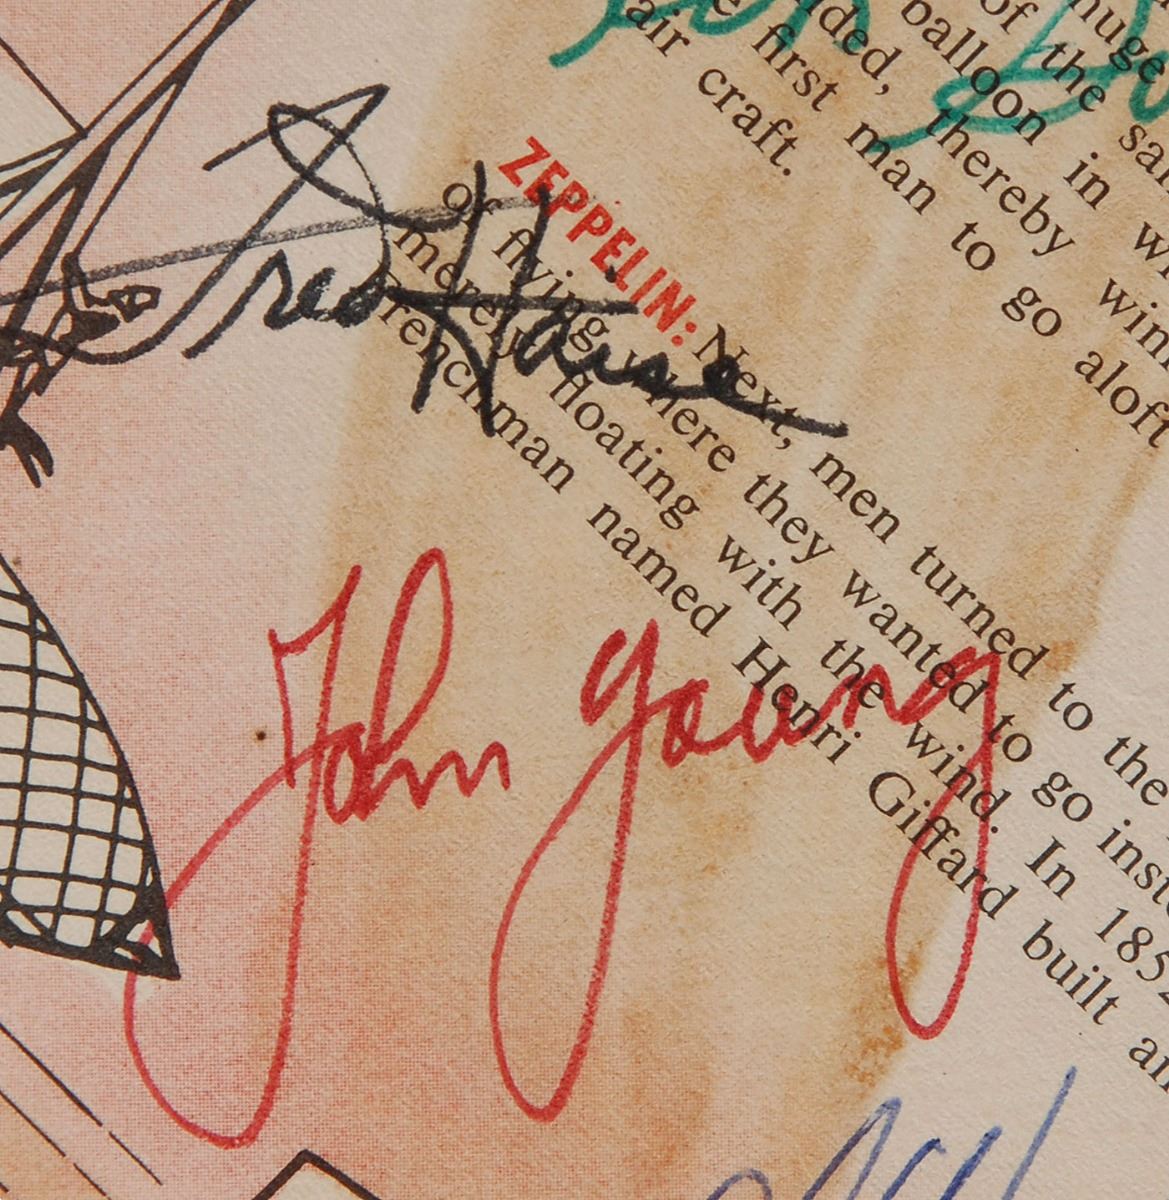 huge
of the sa
balloon in wi
ded, thereby win
e first man to go aloft
air craft.
ZEPPELIN: Next, men turned to the
of flying where they wanted to go inste
merely floating with the wind. In 1852
Frenchman named Henri Giffard built an
Fred Haise
John Young